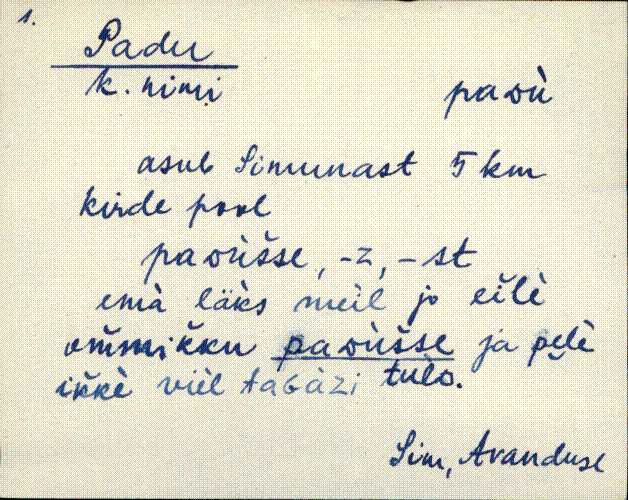 1.
Padu
k. nimi
paᴅù
asub Simunast 5 km
kirde pool
paᴅùs̆se, -z, -st
emà läks meìl jo eilè
om̆mik̆ku paᴅùs̆se ja pèlè
ik̆kè vièl taɢàzi tulò.
Sim, Avanduse